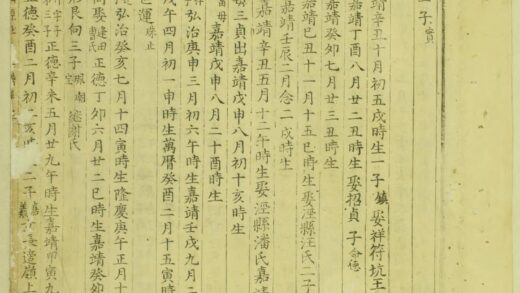 二子實
靖辛丑十月初五戌時生一子鎮娶祥符坑王
嘉靖丁酉八月廿二丑時生娶招貞子會德
嘉靖癸卯七月廿三丑時生
嘉靖己丑十一月十五巳時生娶涇縣汪氏二子
嘉靖壬辰二月念二戌時生
嘉靖辛丑五月十二午時生娶涇縣潘氏嘉靖
三貞出嘉靖戊申八月初十亥時生
嘉靖戊申八月二十酉時生
弘治庚申三月初六午時生嘉靖壬戌九月二
戊午四月初一申時生萬曆癸酉二月十五寅時
運
弘治癸亥七月十四寅時生隆慶庚午正月十
娶曹氏正德丁卯六月廿二巳時生嘉靖癸卯
良向三子謝氏
三子正德辛未五月廿九午時生嘉靖甲寅九
正德癸酉二月初亥時二子嶺上